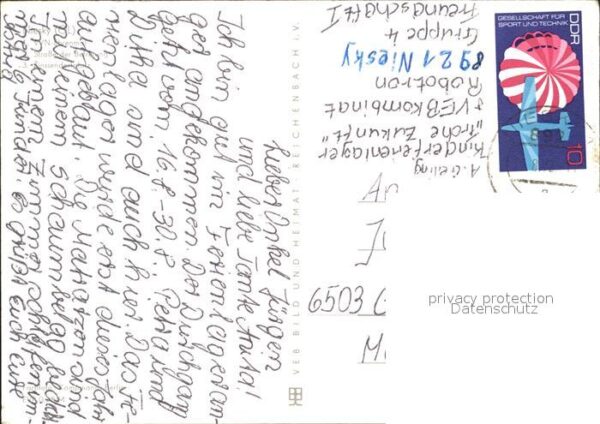 Lieber Onkel Jürgen
und liebe Tante Anita!
Ich bin gut im Ferienlager an-
gekommen. Der Durchgang
geht vom 16.8.-30.8. Petra und
Dirka sind auch hier. Das Fe-
rienlager wurde erst dieses Jahr
aufgebaut. Die Matratzen sind
mit reinem Schaumbelag
In einem Zimmer schlafen im-
mer 4 Kinder. Es grüßt Euch Eure
A. Gieling
Kinderferienlager
"
Zukunft"
VEB Kombinat
Robotron
8921 Niesky
Gruppe 4
Freundschaft I
6503
VEB BILD UND HEIMAT REICHENBACH i.V.
GESELLSCHAFT FÜR
SPORT UND TECHNIK
DDR
10
privacy protection
Datenschutz